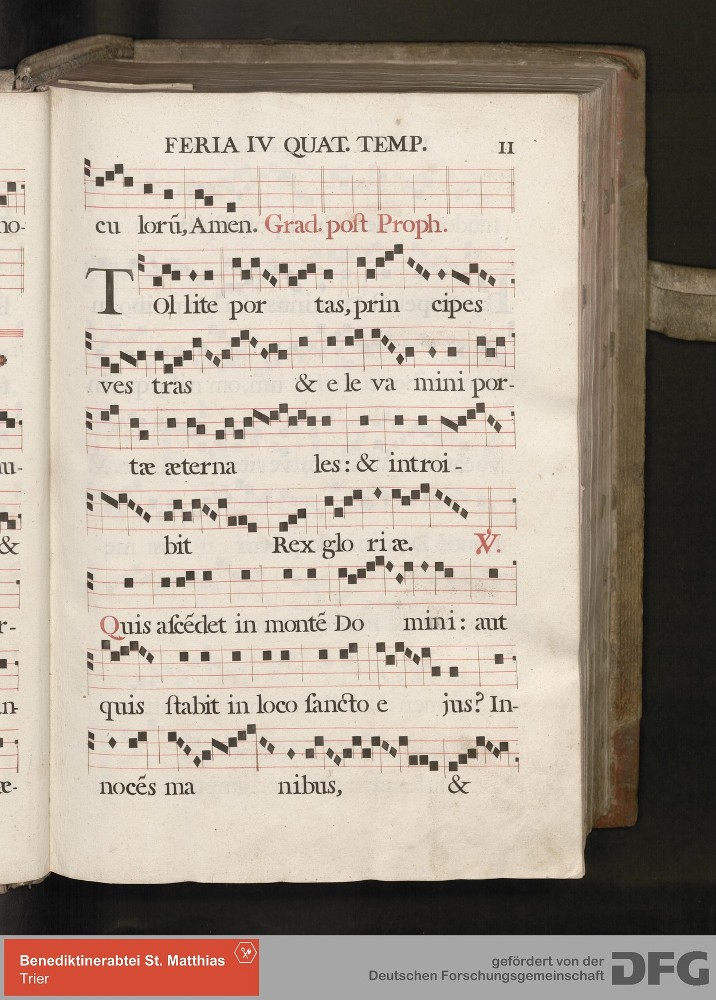 FERIA IV QUAT. TEMP. 11
cu lorū, Amen. Grad. poſt Proph.
TOllite por tas, prin cipes
ves tras & e le va mini por-
tæ æterna les: & introi-
bit Rex glo ri æ. ℣.
Quis aſcēdet in montē Do mini: aut
quis ſtabit in loco ſancto e jus? In-
nocēs ma nibus, &
no-
nu-
&
r-
in-
æ-
Benediktinerabtei St. Matthias
Trier
gefördert von der
Deutschen Forschungsgemeinschaft
DFG